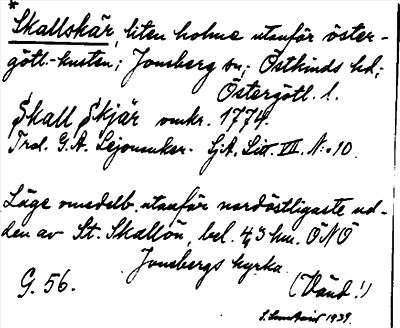 * Skallskär, liten holme utanför öster-
götl.-kusten; Jonsberg sn; Östkinds hd;
Östergötl. l.
Skall Skjär omkr. 1774.
Trol. G.A. Lejonanker. LjA. Litt. VII. N:o 10.
Läge omedelb. utanför nordöstligaste ud-
den av St. Skallön, bel. 4,3 km. ÖNÖ
Jonsbergs kyrka.
G. 56. (Vänd!)
1939.